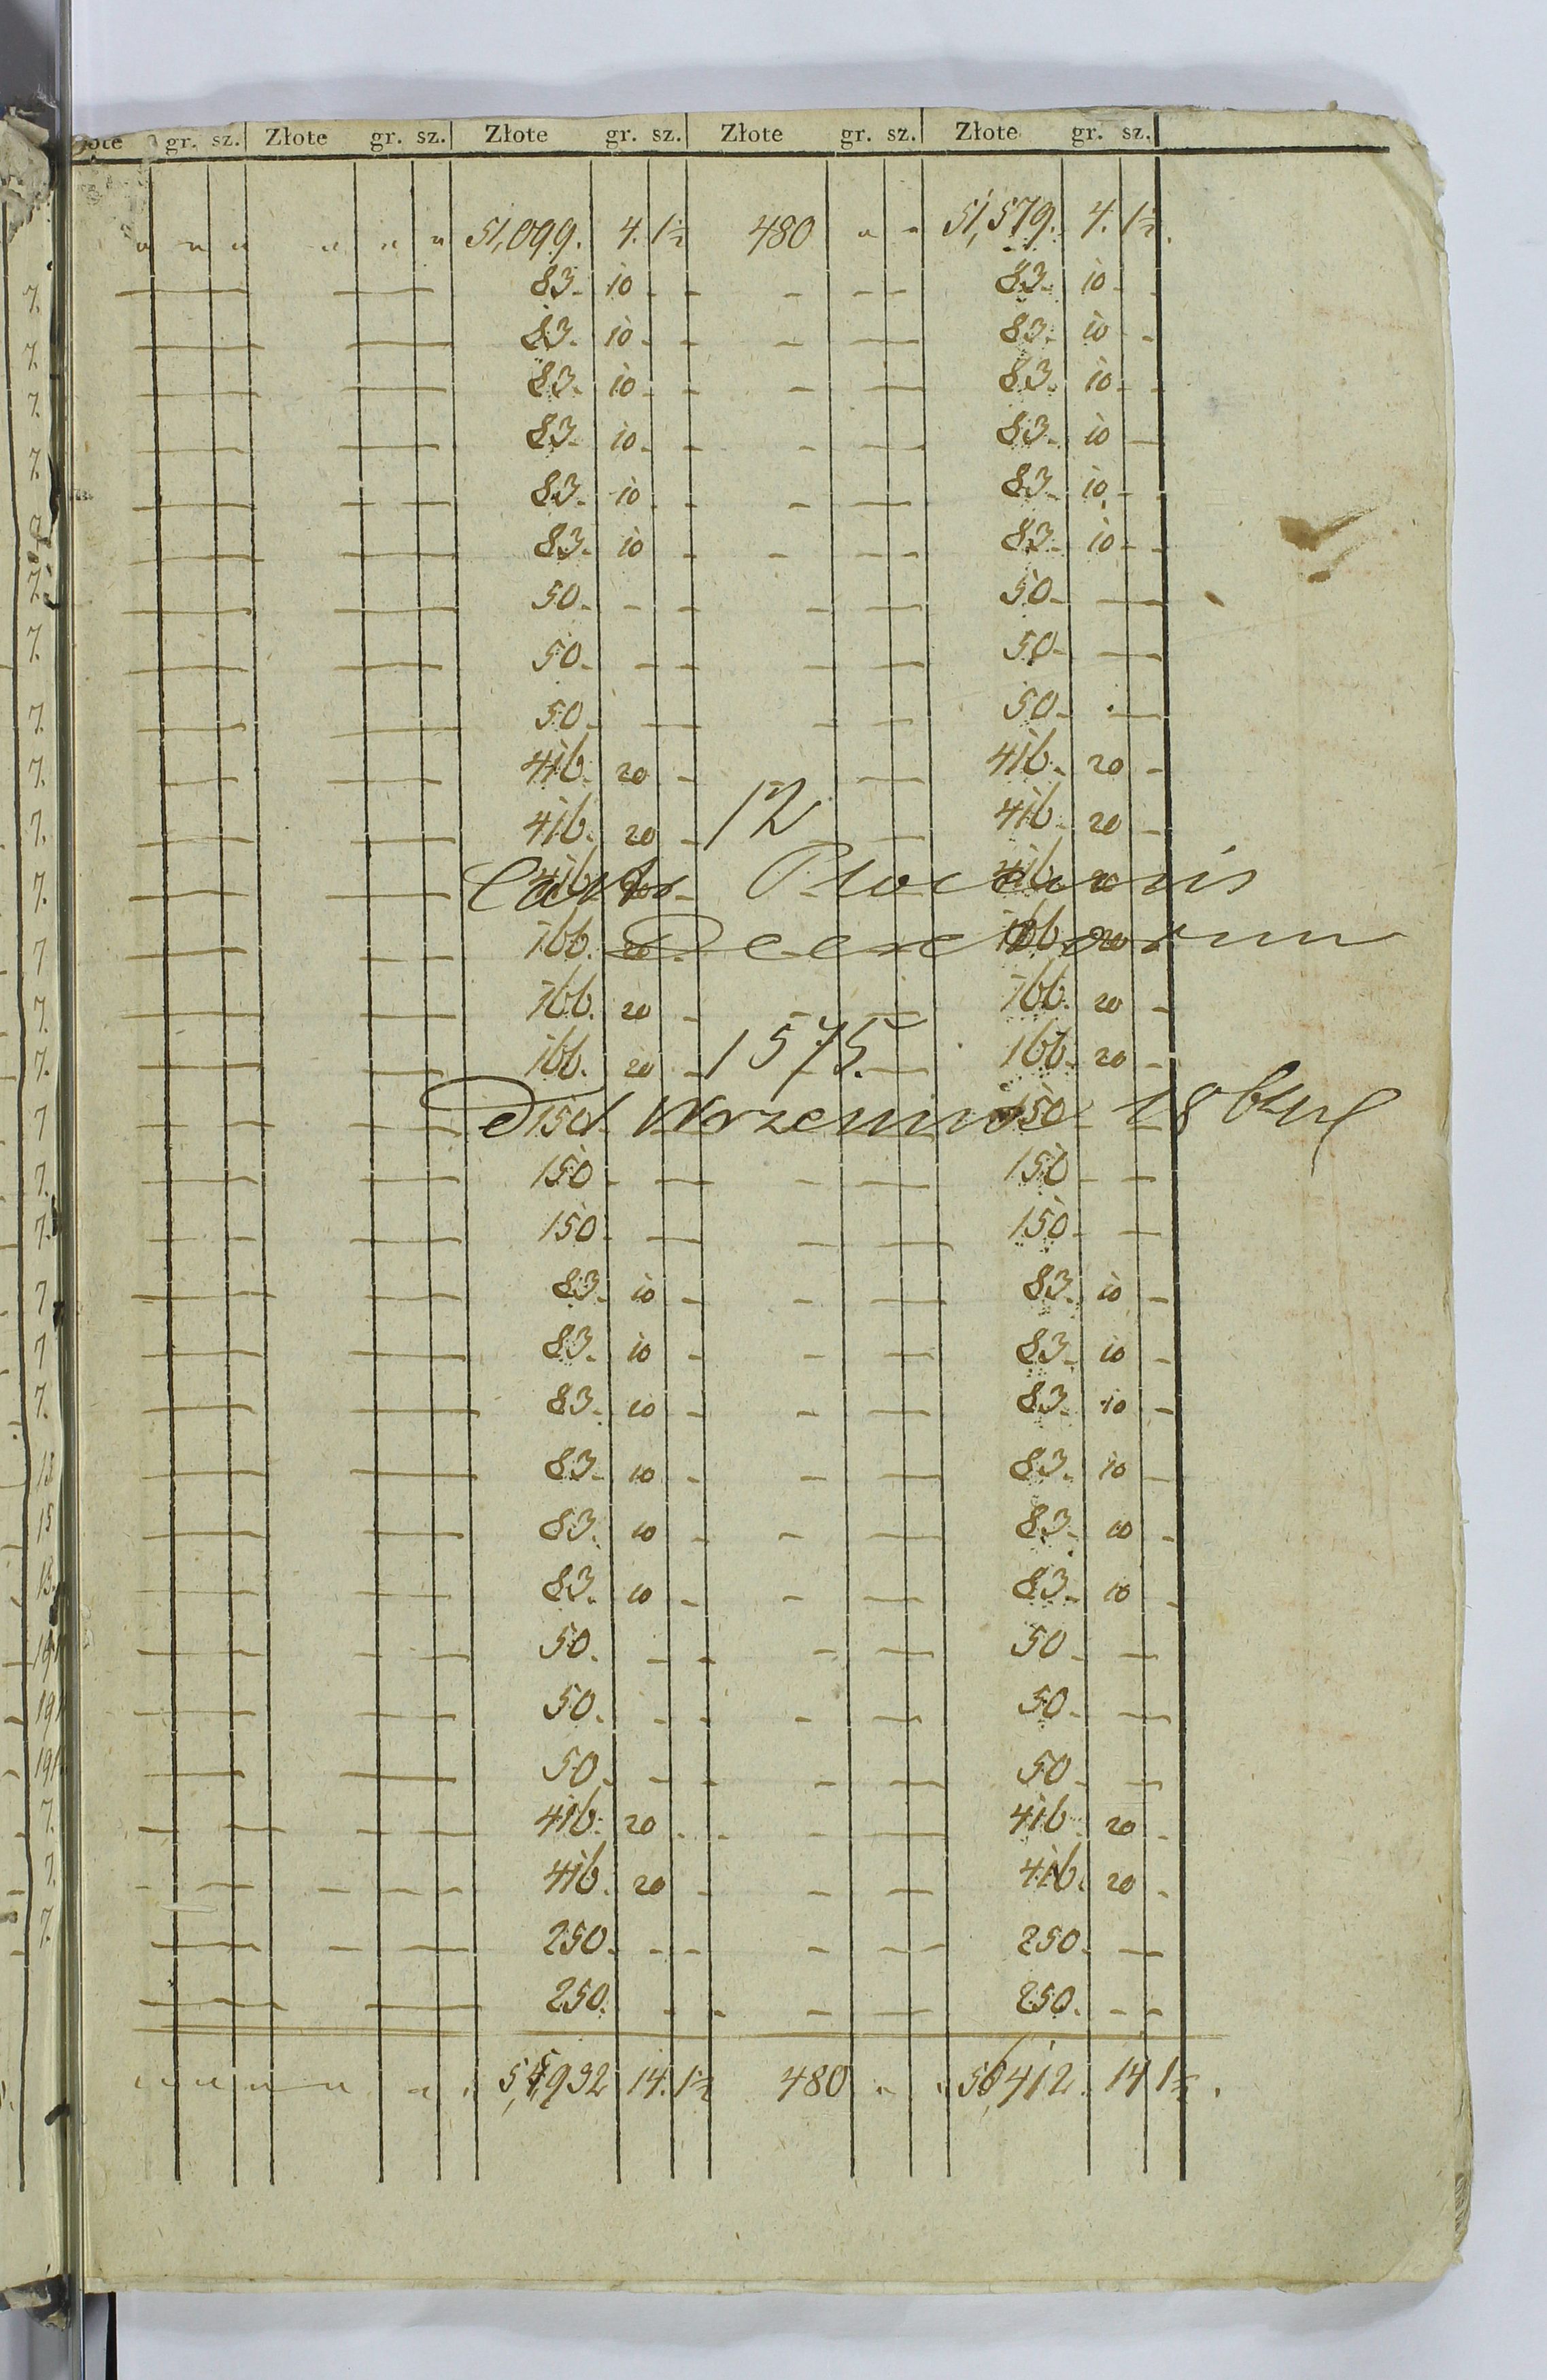 Złote gr. sz. Złote gr. sz. Złote gr. sz. Złote gr. sz.
" " " " " " 51,099. 4. 1½ 480 " " 51,579. 4. 1½.
83. 10 - - - - 83. 10 - -
83. 10 - - - - 83. 10 -
83. 10 - - - - 83. 10 - -
83. 10 - - - - 83. 10 -
83. 10 - - - - 83. 10 -
83. 10 - - - - 83. 10 - -
50. - - - - 50. -
50. - - - - 50. -
50. - - - 50. -
416. 20 - - 416. 20 -
416. 20 - - 416. 20 -
12
416. 20 - 416. 20
166. 20 166. 20
166. 20 - - 166. 20 -
166. 20 - - 166. 20 -
1575.
150 150
150. - - - 150 - -
150. - - - 150. -
83. 10 - - - 83. 10 -
83. 10 - - - 83. 10 -
83. 10 - - - 83. 10 -
83. 10 - - - 83. 10 -
83. 10 - - - 83. 10 -
83. 10 - - - 83. 10 -
50. - - - - 50. -
50. - - - - 50. -
50. - - - - 50. -
416. 20 - - - - 416. 20 -
416. 20 - - - 416. 20 -
250. - - - - 250. -
250. - - - - 250. - -
" " " " " " 55,932 14. 1½ 480 " " 56,412. 14 1½.